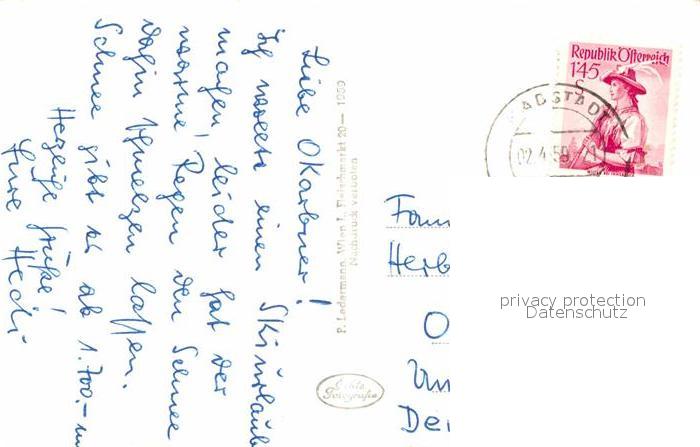 Liebe Okarbner!
Ich wollte einen Skiurlaub
machen, leider hat der
warme Regen den Schnee
dahin schmelzen lassen.
Schnee gibt es ab 1.700.- m
Herzliche Grüße!
Eure Hedi
P. Ledermann, Wien I, Fleischmarkt 20 — 1959
Nachdruck verboten
Echte
Fotografie
Republik Österreich
1'45
S
RADSTADT
02.4.59
Fam
Herb
O
Un
De
privacy protection
Datenschutz